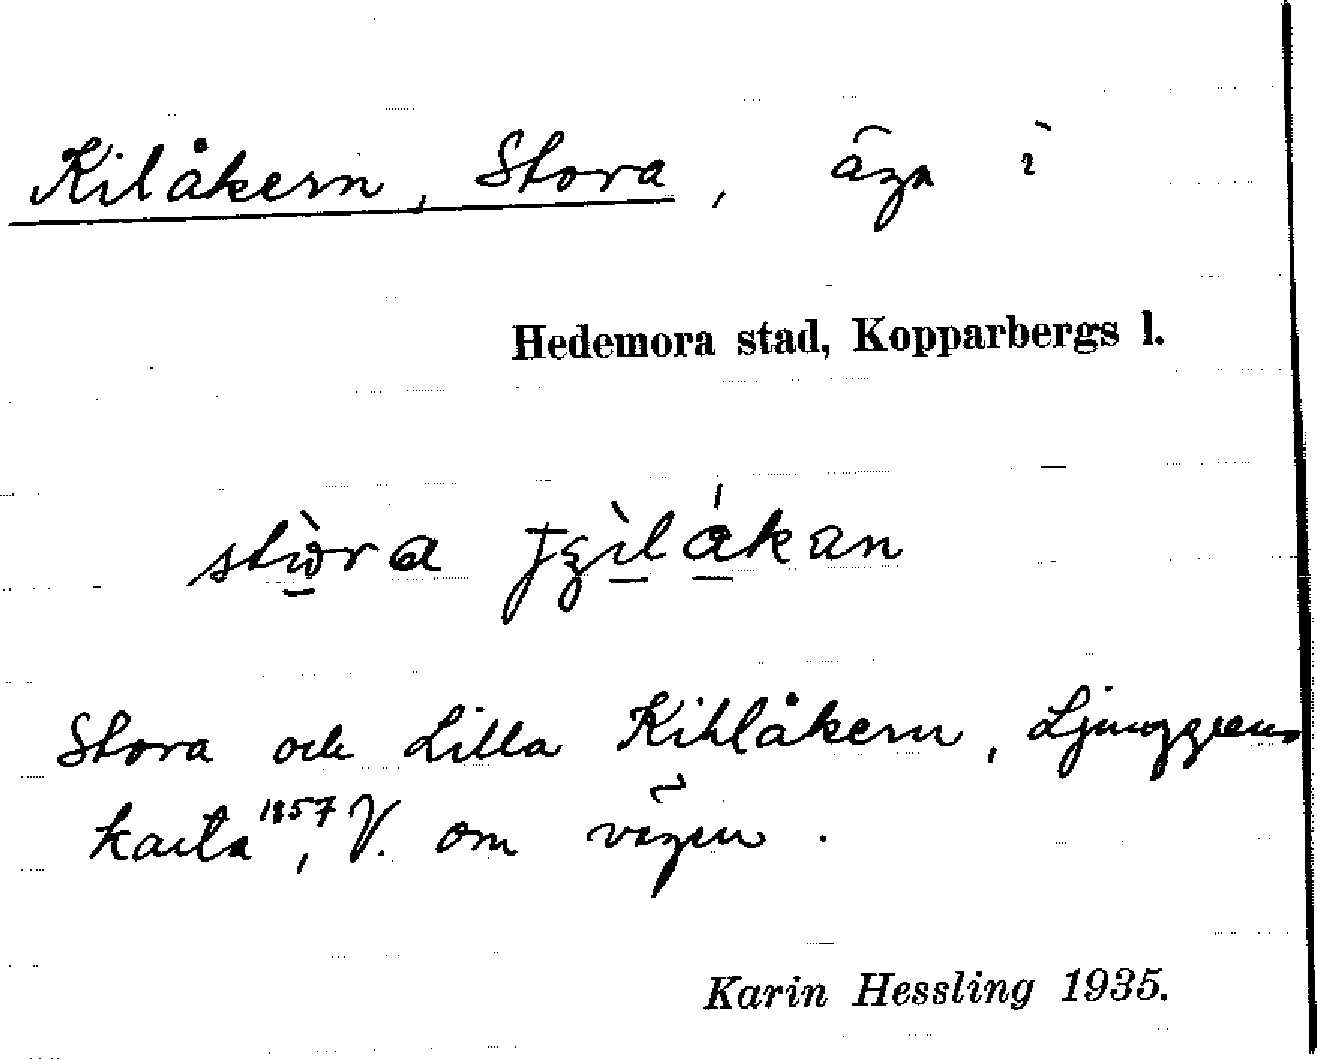 Kilåkern, Stora, äga i
Hedemora stad, Kopparbergs l.
Stora och Lilla Kihlåkern, Ljunggrens
karta 1857, V. om vägen.
Karin Hessling 1935.